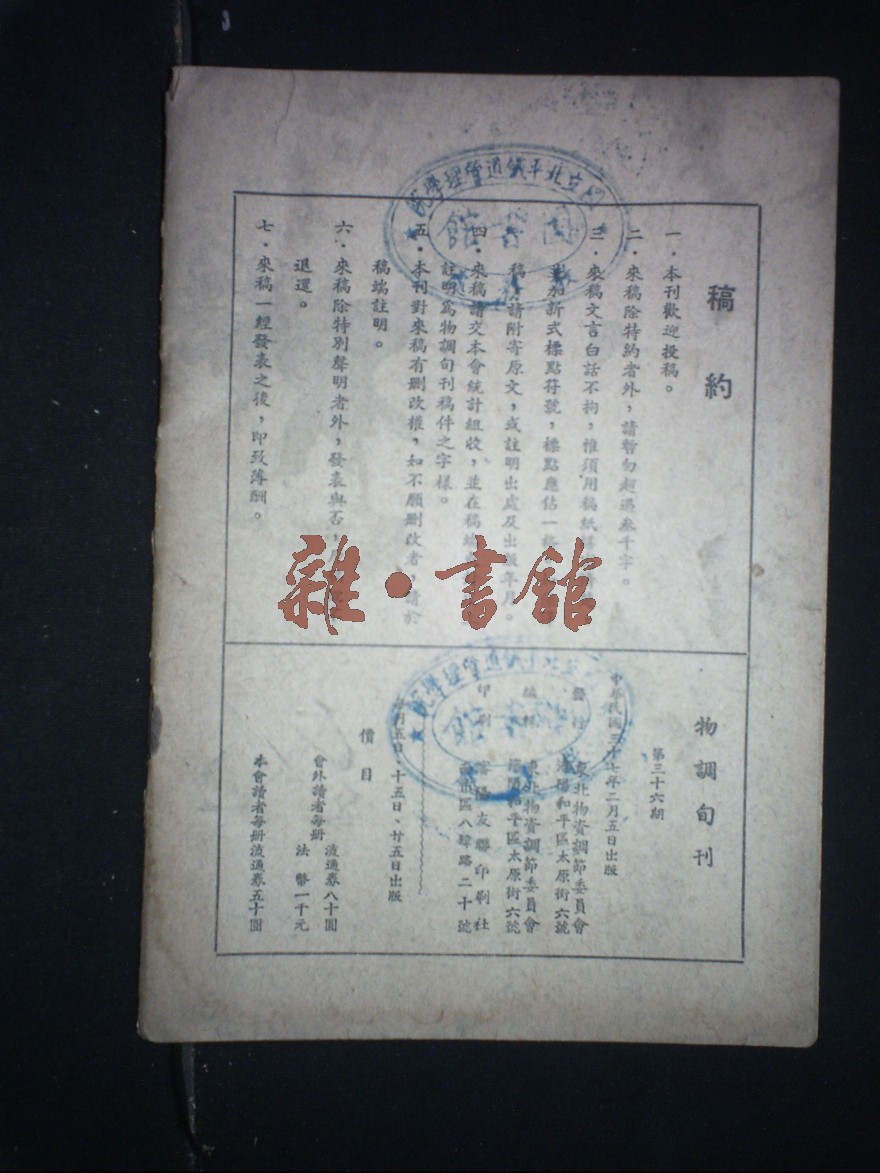 稿約
一．本刊歡迎投稿。
二．來稿除特約者外，請暫勿超過叁千字。
三．來稿文言白話不拘，惟須用稿紙
加新式標點符號，標點應佔一格
稿 請附寄原文，或註明出處及出版年月。
四．來稿請交本會統計組收，並在稿端
註明爲物調旬刊稿件之字樣。
五．本刊對來稿有刪改權，如不願刪改者，請於
稿端註明。
六．來稿除特別聲明者外，發表與否，
退還。
七．來稿一經發表之後，即致薄酬。
物調旬刊
第三十六期
中華民國三十七年二月五日出版
發行 東北物資調節委員會
瀋陽和平區太原街六號
編輯 東北物資調節委員會
瀋陽和平區太原街六號
印刷 瀋陽友聯印刷社
區八緯路二十號
每月五日、十五日、廿五日出版
價目
會外讀者每册 流通券八十圓
法幣一千元
本會讀者每册流通券五十圓
國立北平鐵道管理學院
圖書館
立北平鐵道管理學院
圖書館
雜·書館